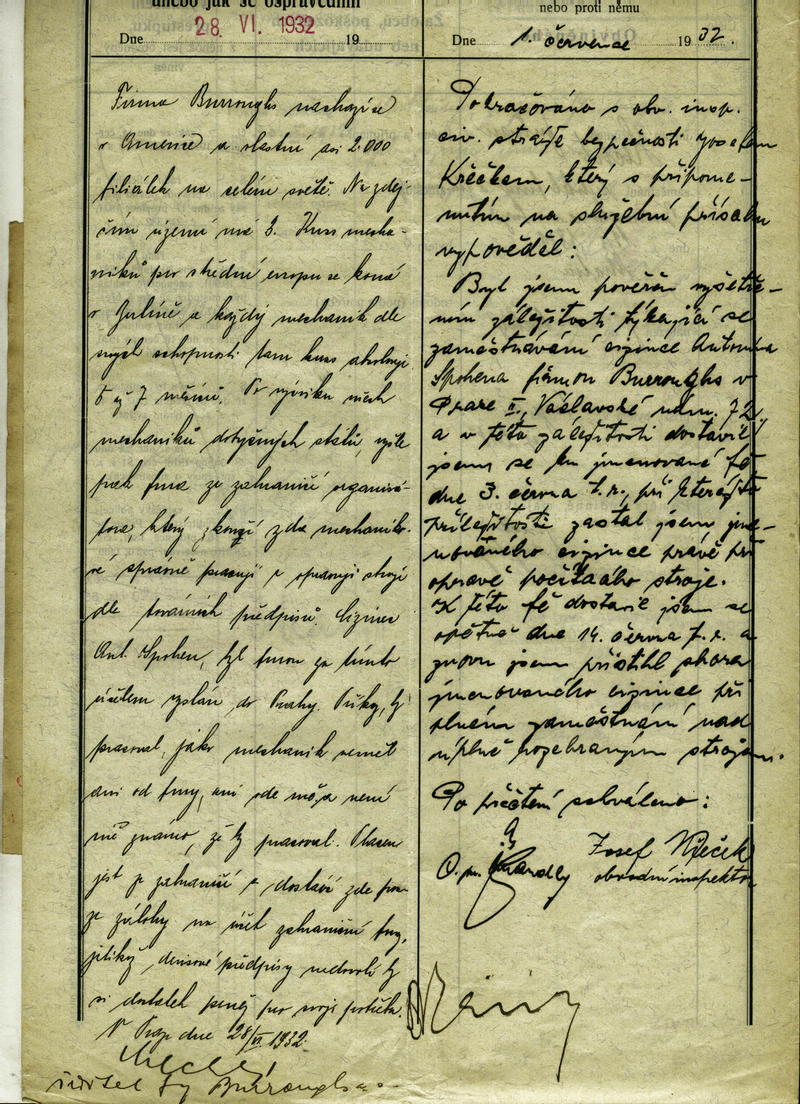 anebo jak se ospravedlnil
Dne 28. VI. 1932 19
Firma Burroughs nachází se
v Americe a vlastní asi 2.000
filiálek na celém světě. Na zdej-
ším území má 3. Kurs mecha-
niků pro střední evropu se koná
v Berlíně a každý mechanik dle
svých schopností tam kurs absolvuje
5 až 7 měsíců. Po výcviku všech
mechaniků dotyčných států, vyšle
pak firma ze zahraničí organisá-
tora, který zkouší zda mechanikо-
vé správně pracují a opravují stroje
dle továrních předpisů. Cizinec
Ant. Spohen, byl firmou za tímto
účelem vyslán do Prahy. Příkaz, by
pracoval, jako mechanik neměl
ani od firmy, ani ode mě a není
mě známo, že by pracoval. Placen
jest ze zahraničí a dostává zde pou-
ze zálohy na účet zahraniční firmy,
jelikož devisové předpisy nedovolí by
si dostatek peněz pro svoji potřebu.
V Praze dne 28/VI 1932.
ředitel fy Burroughs
nebo proti němu
Dne 1. července 1932.
Pokračováno s obv. insp.
civ. stráže bezpečnosti Josefem
Křečkem, který s připome-
nutím na služební přísahu
vypověděl:
Byl jsem pověřen vyšetře-
ním záležitosti týkající se
zaměstnávání cizince Antonína
Spohena firmou Burroughs v
Praze II., Václavské nám. 72,
a v této záležitosti dostavil
jsem se ku jmenované fě
dne 3. června t.r., při kteréžto
příležitosti zastal jsem jme-
novaného cizince právě při
opravě počítacího stroje.
K této fě dostavil jsem se
opětně dne 14. června t.r. a
znovu jsem přistihl shora
jmenovaného cizince při
plném zaměstnání nad
úplně rozebraným strojem.
Po přečtení schváleno:
Josef Křeček
obvodní inspektor